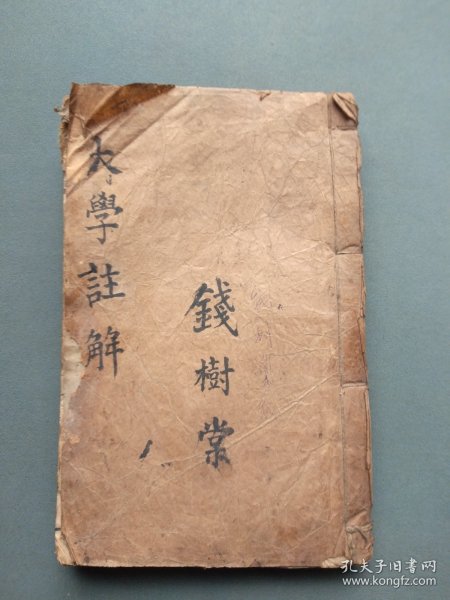 大學註解
錢樹棠
孔夫子旧书网
www.kongfz.com